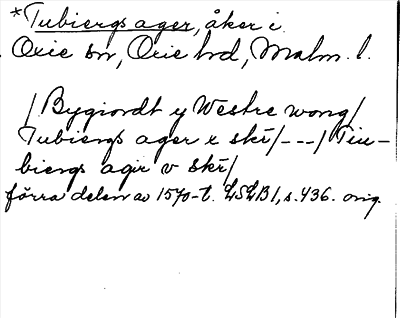 *Tubiergs ager, åker i
Oxie sn, Oxie hd, Malm. l.
/Bygiordt y Westre wong/
Tubiergs ager x skr/---/Tiu-
biergs agir v skr/
förra delen av 1570-t. LSLB1, s. 436. orig.